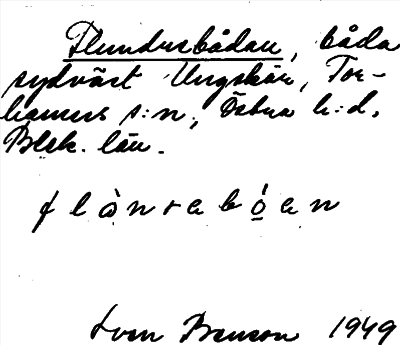 Flundrebådan, båda
sydväst Ungskär, Tor-
hamns s:n, Östra h:d,
Blek. län.
flànrabóan
Sven Benson 1949